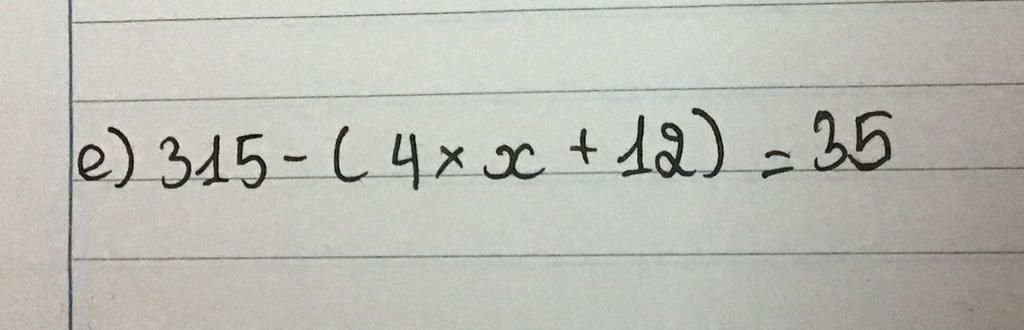 e) 315 - ( 4 × x + 12 ) = 35